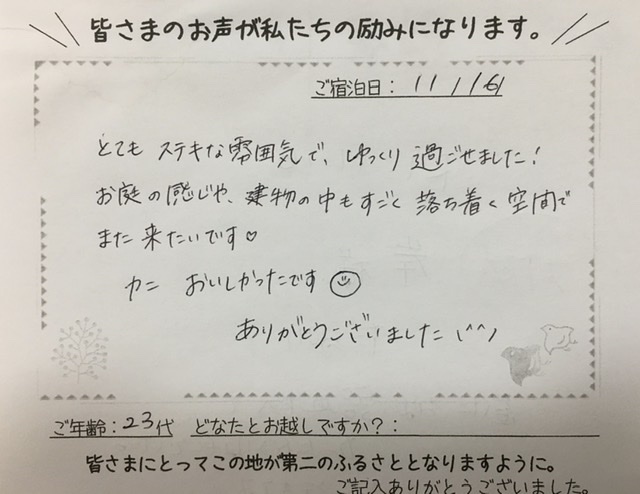 皆さまのお声が私たちの励みになります。
ご宿泊日：11/16
とても ステキな雰囲気で、ゆっくり 過ごせました！
お庭の感じや、建物の中もすごく 落ち着く空間で
また 来たいです♡
カニ おいしかったです☺
ありがとうございました (^^)
ご年齢：23代 どなたとお越しですか？：
皆さまにとってこの地が第二のふるさととなりますように。
ご記入ありがとうございました。